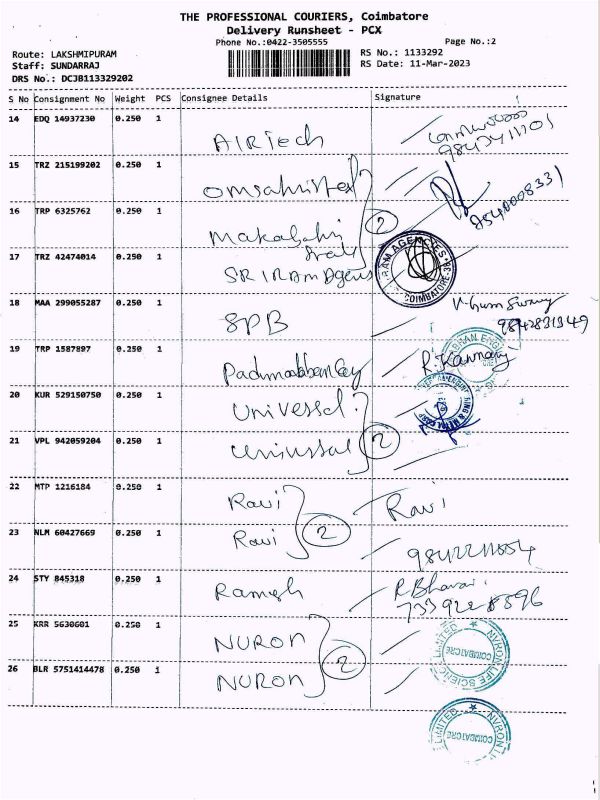 THE PROFESSIONAL COURIERS, Coimbatore
Delivery Runsheet - PCX
Phone No.:0422-3505555 Page No.:2
Route: LAKSHMIPURAM RS No.: 1133292
Staff: SUNDARRAJ RS Date: 11-Mar-2023
DRS No.: DCJB113329202
S No Consignment No Weight PCS Consignee Details Signature
14 EDQ 14937230 0.250 1 AIRTech
15 TRZ 215199202 0.250 1
16 TRP 6325762 0.250 1 2
17 TRZ 42474014 0.250 1 SRIRAM Agens
RAM AGENCIES COIMBATORE
18 MAA 299055287 0.250 1 SPB
9842831349
19 TRP 1587897 0.250 1 R. Kannan
20 KUR 529150750 0.250 1 Universal
21 VPL 942059204 0.250 1 Universal 2
22 MTP 1216184 0.250 1 Ravi Ravi
23 NLM 60427669 0.250 1 Ravi 2
24 STY 845318 0.250 1 Ramesh
25 KRR 5630601 0.250 1 NURON
NVRON LIFE SCIENCE LIMITED COIMBATORE
26 BLR 5751414478 0.250 1 NURON 2
NVRON LIMITED COIMBATORE